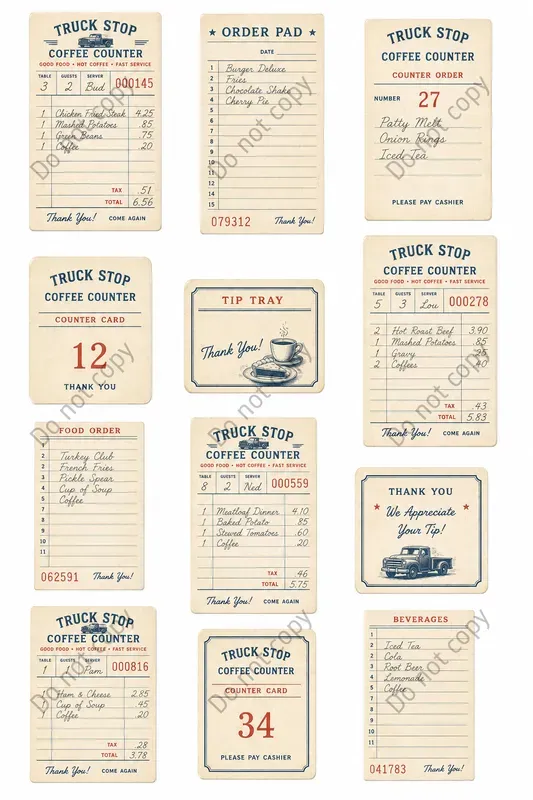 TRUCK STOP
COFFEE COUNTER
GOOD FOOD • HOT COFFEE • FAST SERVICE
TABLE GUESTS SERVER
3 2 Bud 000145
1 Chicken Fried Steak 4.25
1 Mashed Potatoes .85
1 Green Beans .75
1 Coffee .20
TAX .51
TOTAL 6.56
Thank You! COME AGAIN
★ ORDER PAD ★
DATE
1 Burger Deluxe
2 Fries
3 Chocolate Shake
4 Cherry Pie
5
6
7
8
9
10
11
12
13
14
15
079312 Thank You!
TRUCK STOP
COFFEE COUNTER
COUNTER ORDER
NUMBER 27
Patty Melt
Onion Rings
Iced Tea
PLEASE PAY CASHIER
TRUCK STOP
COFFEE COUNTER
COUNTER CARD
12
THANK YOU
TIP TRAY
Thank You!
TRUCK STOP
COFFEE COUNTER
GOOD FOOD • HOT COFFEE • FAST SERVICE
TABLE GUESTS SERVER
5 3 Lou 000278
2 Hot Roast Beef 3.90
1 Mashed Potatoes .85
1 Gravy .25
2 Coffees .40
TAX .43
TOTAL 5.83
Thank You! COME AGAIN
FOOD ORDER
1
2 Turkey Club
3 French Fries
4 Pickle Spear
5 Cup of Soup
6 Coffee
7
8
9
10
11
062591 Thank You!
TRUCK STOP
COFFEE COUNTER
GOOD FOOD • HOT COFFEE • FAST SERVICE
TABLE GUESTS SERVER
8 2 Ned 000559
1 Meatloaf Dinner 4.10
1 Baked Potato .85
1 Stewed Tomatoes .60
1 Coffee .20
TAX .46
TOTAL 5.75
Thank You! COME AGAIN
THANK YOU
★ We Appreciate ★
Your Tip!
TRUCK STOP
COFFEE COUNTER
GOOD FOOD • HOT COFFEE • FAST SERVICE
TABLE GUESTS SERVER
1 1 Pam 000816
1 Ham & Cheese 2.85
1 Cup of Soup .45
1 Coffee .20
TAX .28
TOTAL 3.78
Thank You! COME AGAIN
TRUCK STOP
COFFEE COUNTER
COUNTER CARD
34
PLEASE PAY CASHIER
BEVERAGES
1
2 Iced Tea
3 Cola
4 Root Beer
5 Lemonade
6 Coffee
7
8
9
10
11
041783 Thank You!
Do not copy
Do not copy
Do not copy
Do not copy
Do not copy
Do not copy
Do not copy
Do not copy
Do not copy